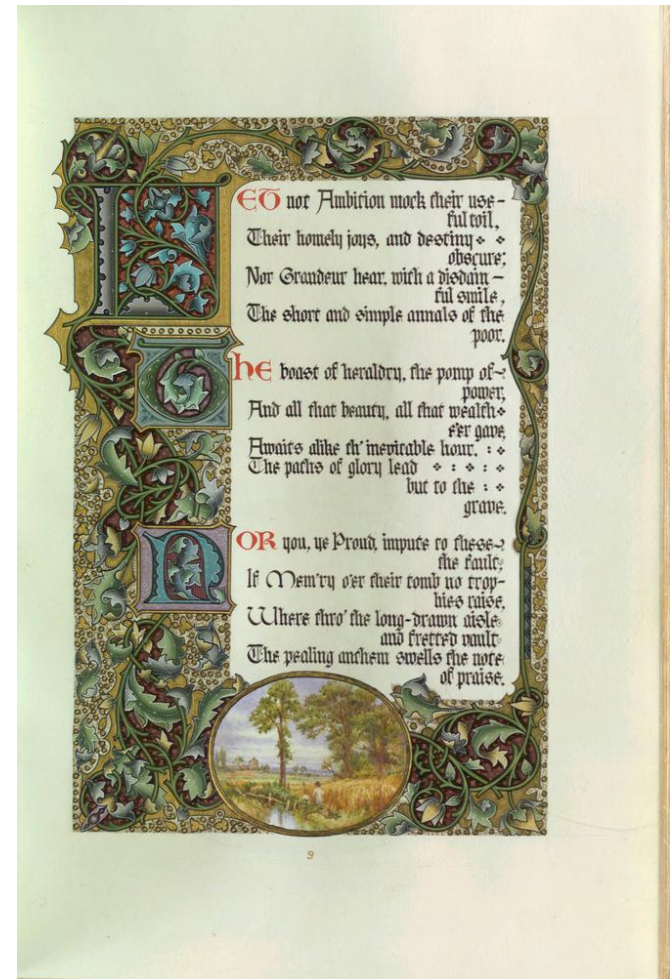 LET not Ambition mock their use-
ful toil,
Their homely joys, and destiny
obscure;
Nor Grandeur hear, with a disdain-
ful smile,
The short and simple annals of the
poor.
THE boast of heraldry, the pomp of
power,
And all that beauty, all that wealth
e'er gave,
Awaits alike th' inevitable hour.
The paths of glory lead
but to the
grave.
NOR you, ye Proud, impute to these
the fault,
If Mem'ry o'er their tomb no trop-
hies raise,
Where thro' the long-drawn aisle
and fretted vault
The pealing anthem swells the note
of praise.
9